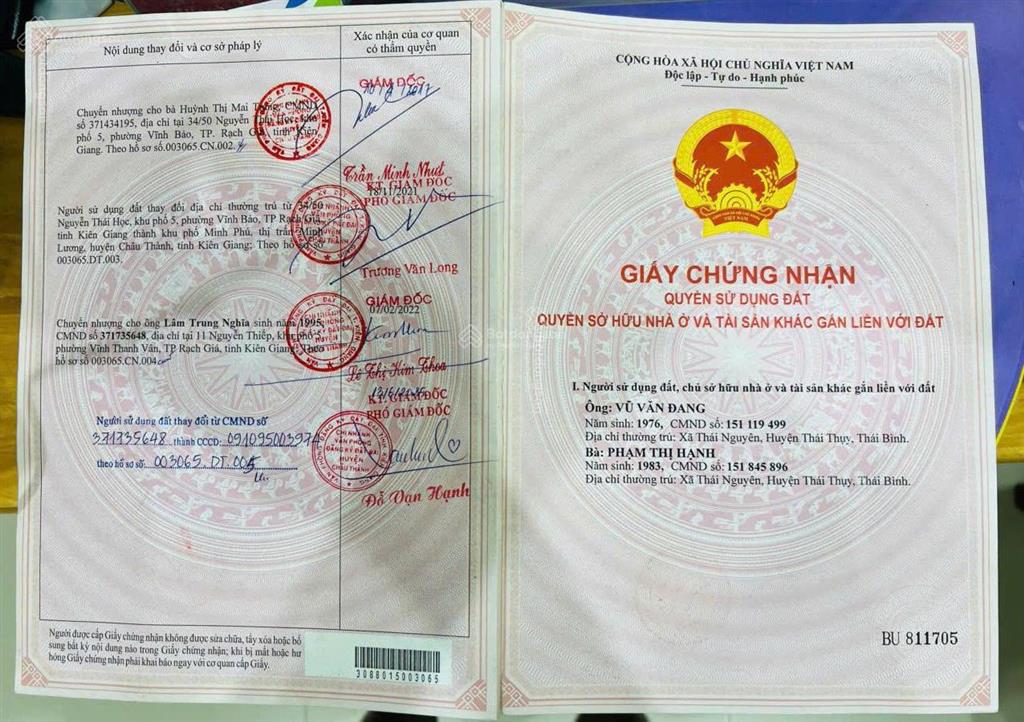 Nội dung thay đổi và cơ sở pháp lý
Xác nhận của cơ quan
có thẩm quyền
Chuyển nhượng cho bà Huỳnh Thị Mai CMND
số 371434195, địa chỉ tại 34/50 Nguyễn Thái Học, khu
phố 5, phường Vĩnh Bảo, TP. Rạch Giá, tỉnh Kiên
Giang. Theo hồ sơ số.003065.CN.002.
GIÁM ĐỐC
Trần Minh Nhựt
Người sử dụng đất thay đổi địa chỉ thường trú từ 34/50
Nguyễn Thái Học, khu phố 5, phường Vĩnh Bảo, TP Rạch Giá,
tỉnh Kiên Giang thành khu phố Minh Phú, thị trấn Minh
Lương, huyện Châu Thành, tỉnh Kiên Giang; Theo hồ sơ số
003065.DT.003.
18/11/2021
KT. GIÁM ĐỐC
PHÓ GIÁM ĐỐC
Trương Văn Long
Chuyển nhượng cho ông Lâm Trung Nghĩa sinh năm 1995,
CMND số 371735648, địa chỉ tại 11 Nguyễn Thiếp, khu phố 5,
phường Vĩnh Thanh Vân, TP Rạch Giá, tỉnh Kiên Giang; Theo
hồ sơ số 003065.CN.004
GIÁM ĐỐC
07/02/2022
Lê Thị Kim Thoa
Người sử dụng đất thay đổi từ CMND số
371735648 thành CCCD: 091095003974
theo hồ sơ số: 003065.DT.005
KT. GIÁM ĐỐC
PHÓ GIÁM ĐỐC
CHI NHÁNH
VĂN PHÒNG
ĐĂNG KÝ ĐẤT ĐAI
HUYỆN
CHÂU THÀNH
Đỗ Vạn Hạnh
Người được cấp Giấy chứng nhận không được sửa chữa, tẩy xóa hoặc bổ
sung bất kỳ nội dung nào trong Giấy chứng nhận; khi bị mất hoặc hư
hỏng Giấy chứng nhận phải khai báo ngay với cơ quan cấp Giấy.
3088015003065
CỘNG HÒA XÃ HỘI CHỦ NGHĨA VIỆT NAM
Độc lập - Tự do - Hạnh phúc
CỘNG HÒA XÃ HỘI CHỦ NGHĨA
VIỆT NAM
GIẤY CHỨNG NHẬN
QUYỀN SỬ DỤNG ĐẤT
QUYỀN SỞ HỮU NHÀ Ở VÀ TÀI SẢN KHÁC GẮN LIỀN VỚI ĐẤT
I. Người sử dụng đất, chủ sở hữu nhà ở và tài sản khác gắn liền với đất
Ông: VŨ VĂN ĐANG
Năm sinh: 1976, CMND số: 151 119 499
Địa chỉ thường trú: Xã Thái Nguyên, Huyện Thái Thụy, Thái Bình.
Bà: PHẠM THỊ HẠNH
Năm sinh: 1983, CMND số: 151 845 896
Địa chỉ thường trú: Xã Thái Nguyên, Huyện Thái Thụy, Thái Bình.
BU 811705